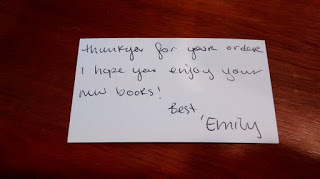 thankyou for your order
I hope you enjoy your
new books!
Best,
Emily